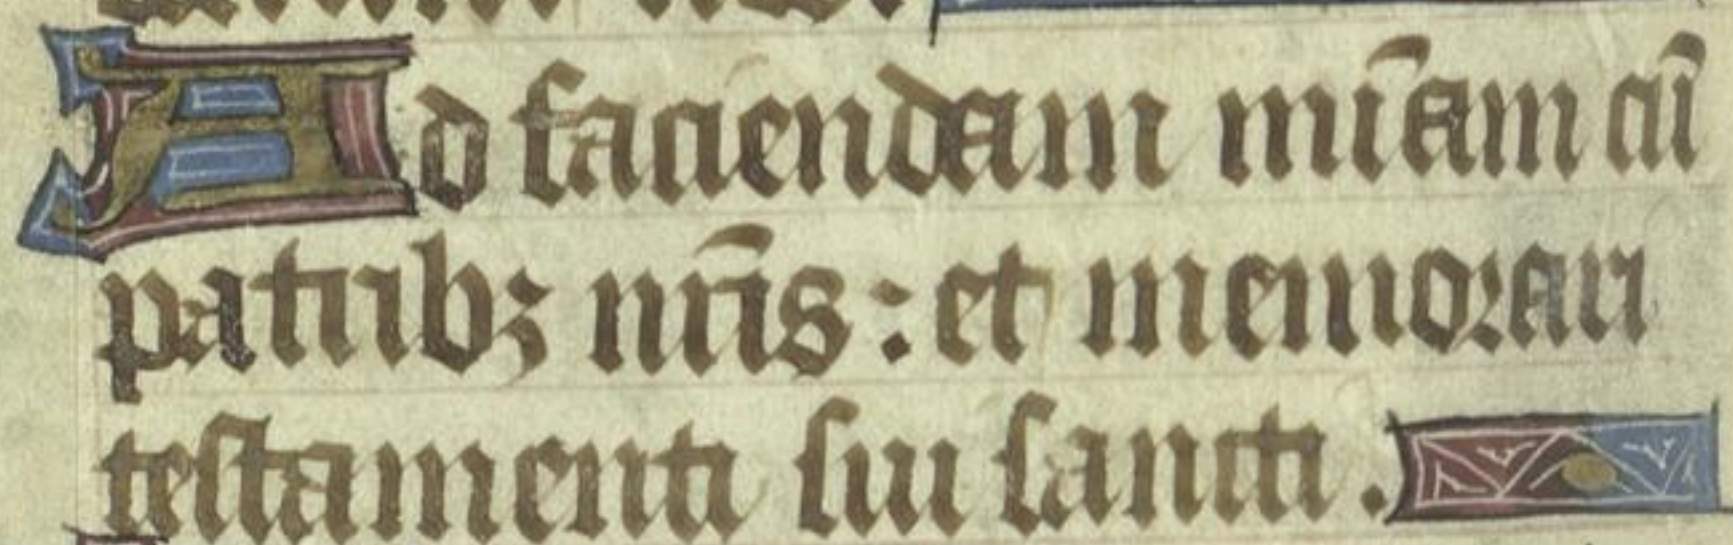 Ad faciendam mīam cū
patribꝫ nr̄is : et memorari
testamenti sui sancti .